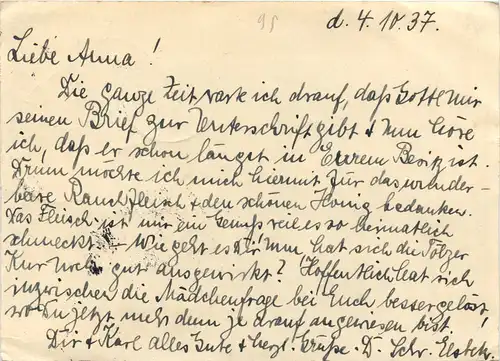 95
d. 4.10.37.
Liebe Anna!
Die ganze Zeit warte ich drauf, daß Gottl mir
seinen Brief zur Unterschrift gibt & nun höre
ich, daß er schon längst in Eurem Besitz ist.
Drum möchte ich mich hiermit für das wunder-
bare Rauchfleisch & den schönen Honig bedanken.
Das Fleisch ist mir ein Genuß weil es so heimatlich
schmeckt. – Wie geht es Dir? Nun hat sich die Tölzer
Kur noch gut ausgewirkt? Hoffentlich hat sich
inzwischen die Mädchenfrage bei Euch besser gelöst,
wo Du jetzt mehr denn je drauf angewiesen bist.
Dir & Karl alles Gute & herzl. Grüße. D. Schw. Elsbeth.